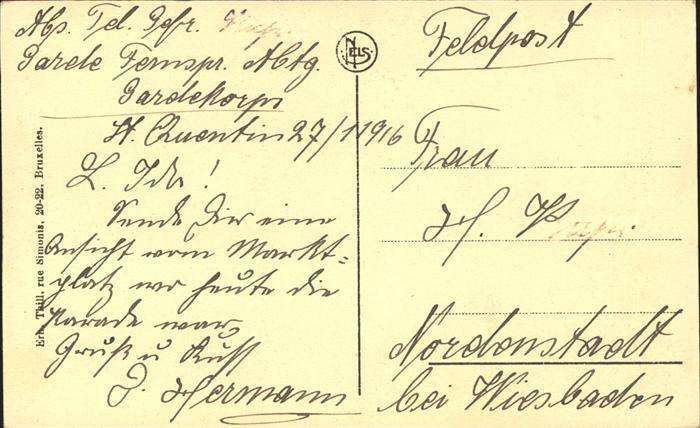 Abs. Tel. Gefr.
Garde Fernspr. Abtg.
Gardekorps
St. Quentin 27/1 1916
L. Ida!
Sende Dir eine
Ansicht vom Markt=
platz wo heute die
Parade war,
Gruß u Kuss
D. Hermann
NELS
Ern. Thill, rue Simonis, 20-22, Bruxelles.
Feldpost
Frau
H. P
Nordenstadt
bei Wiesbaden